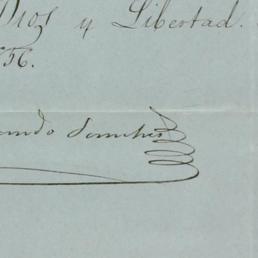 Dios y Libertad.
856.
ando Sanches